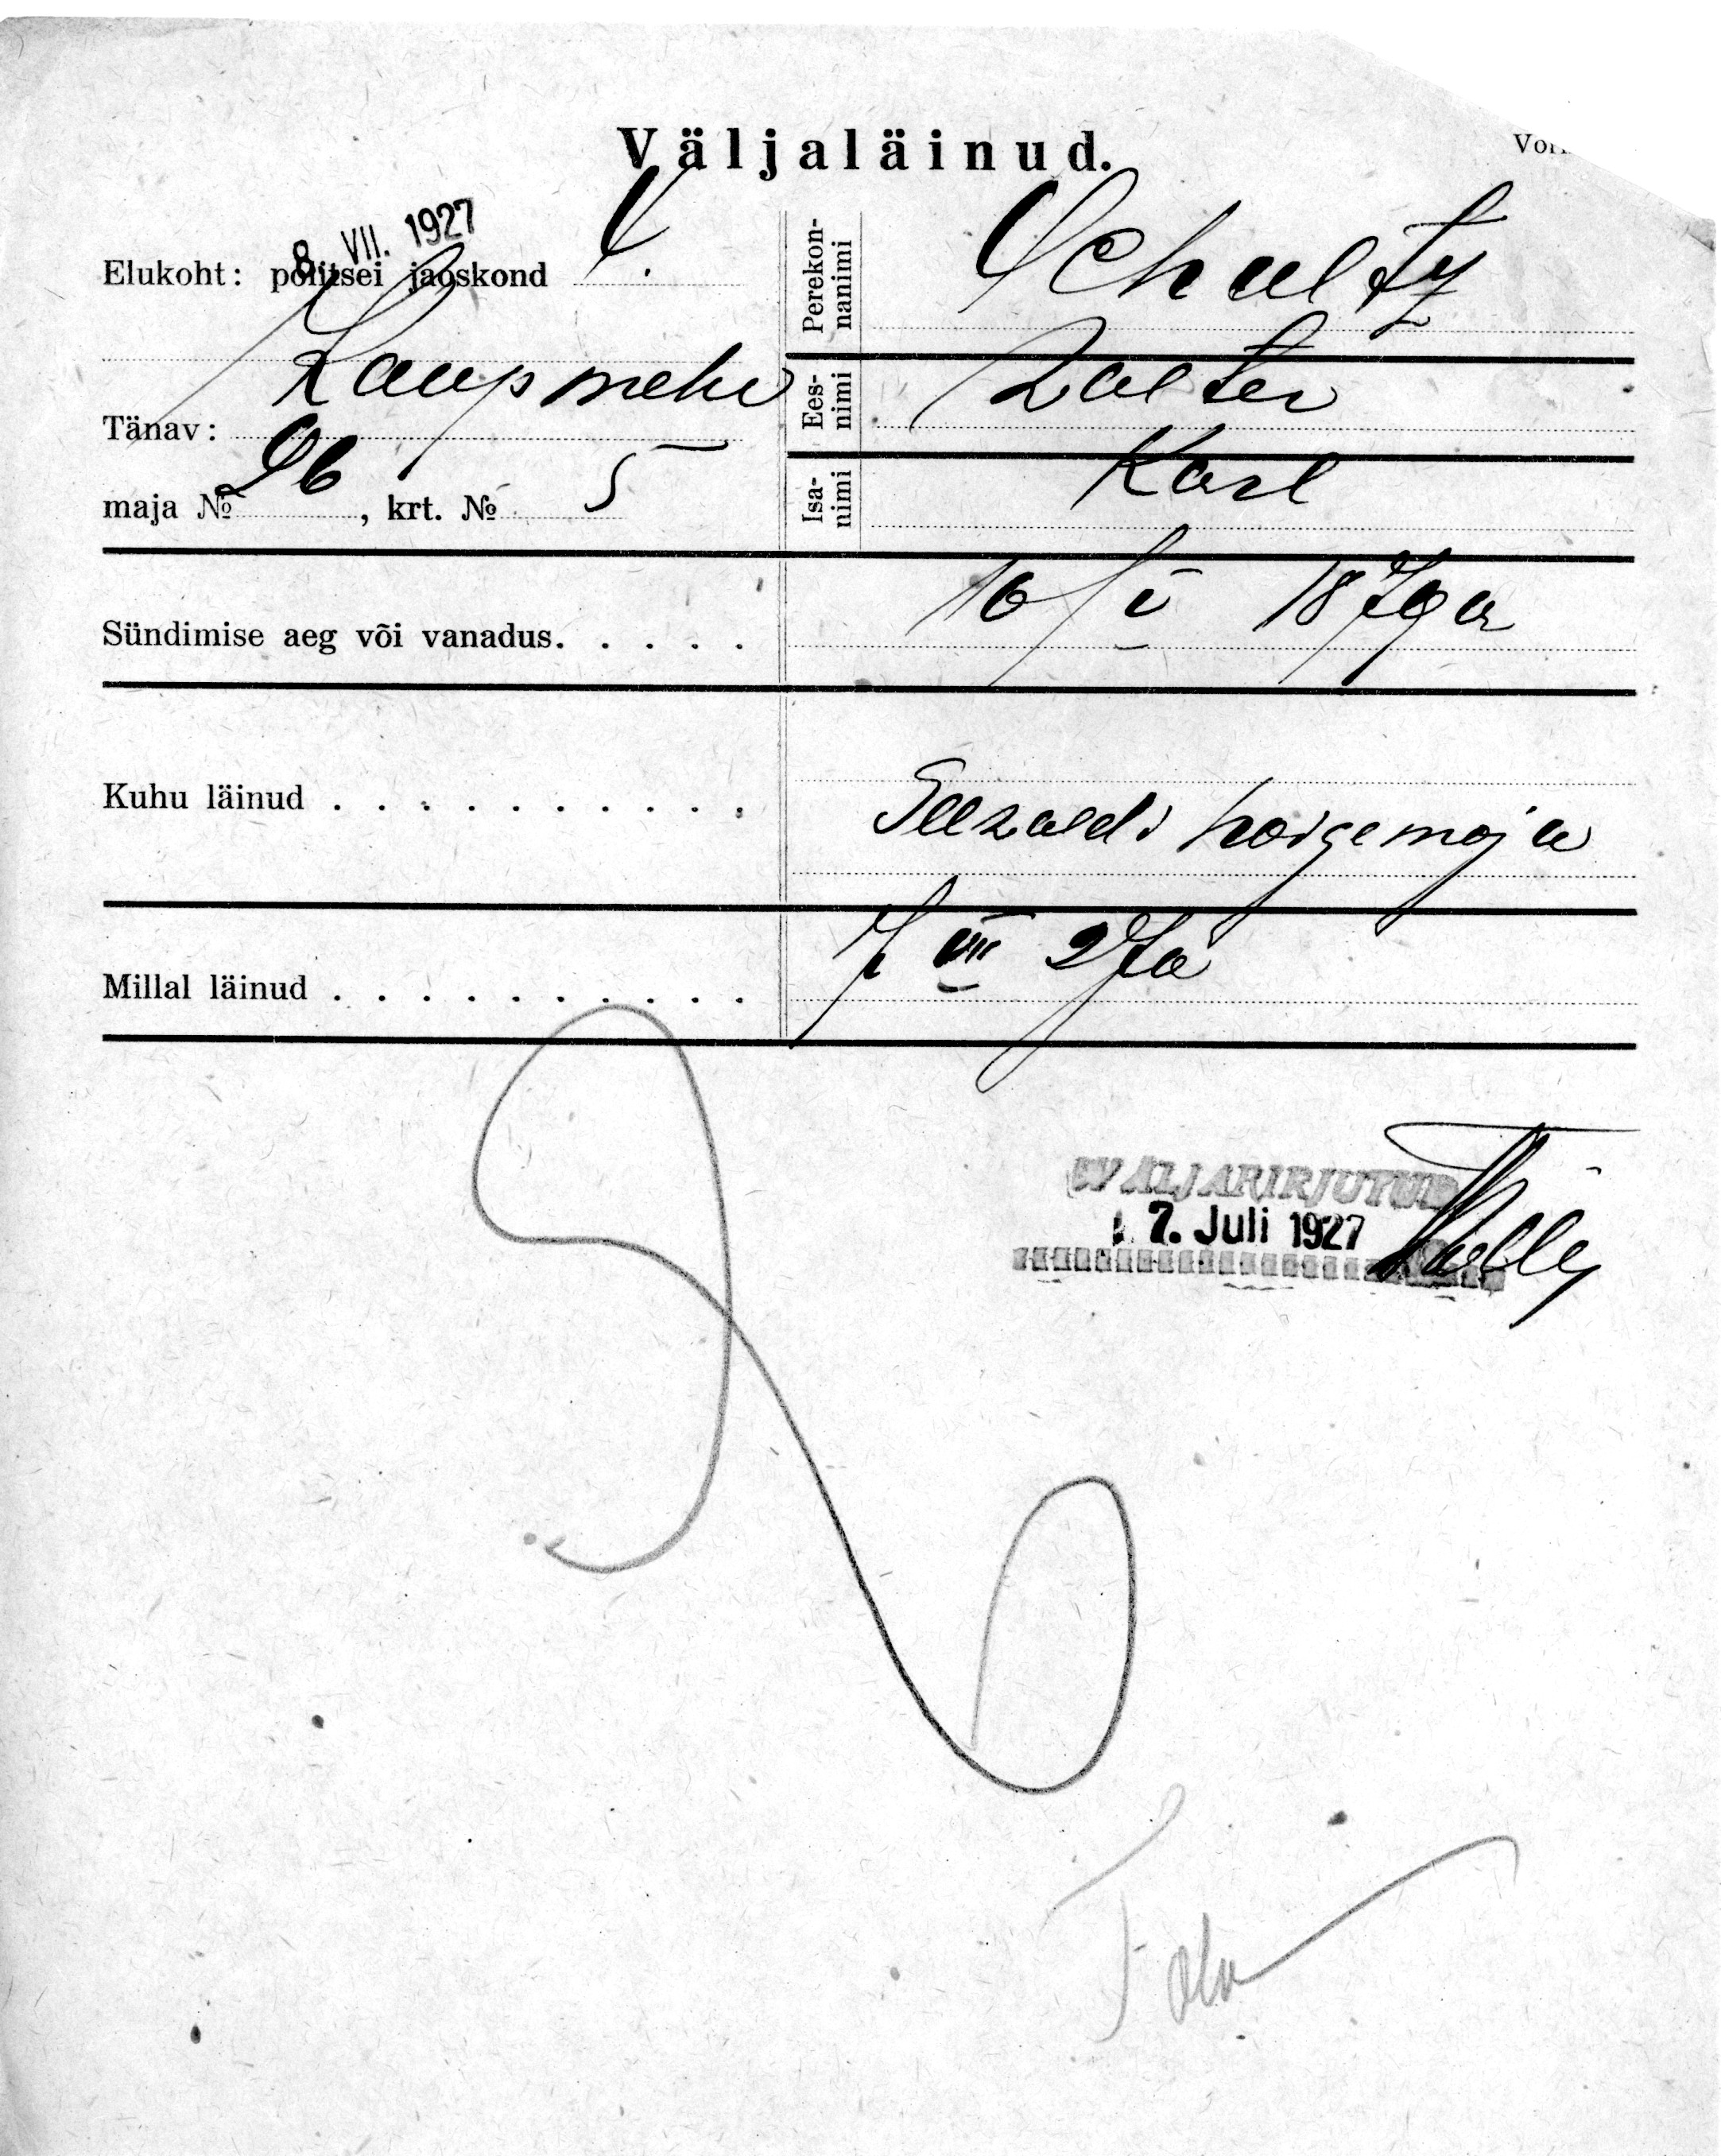 Väljaläinud.
8. VII. 1927
Elukoht: politsei jaoskond
Kaupmehe
Tänav:
maja № 26, krt. № 5
Perekonnanimi Schultz
Eesnimi Valter
Isanimi Karl
Sündimise aeg või vanadus. . . . . 16/I 1879 a
Kuhu läinud . . . . . . . . . . Seevaldi haigemaja
Millal läinud . . . . . . . . . . 7/VII 27 a
VÄLJAKIRJUTUD
7. Juli 1927